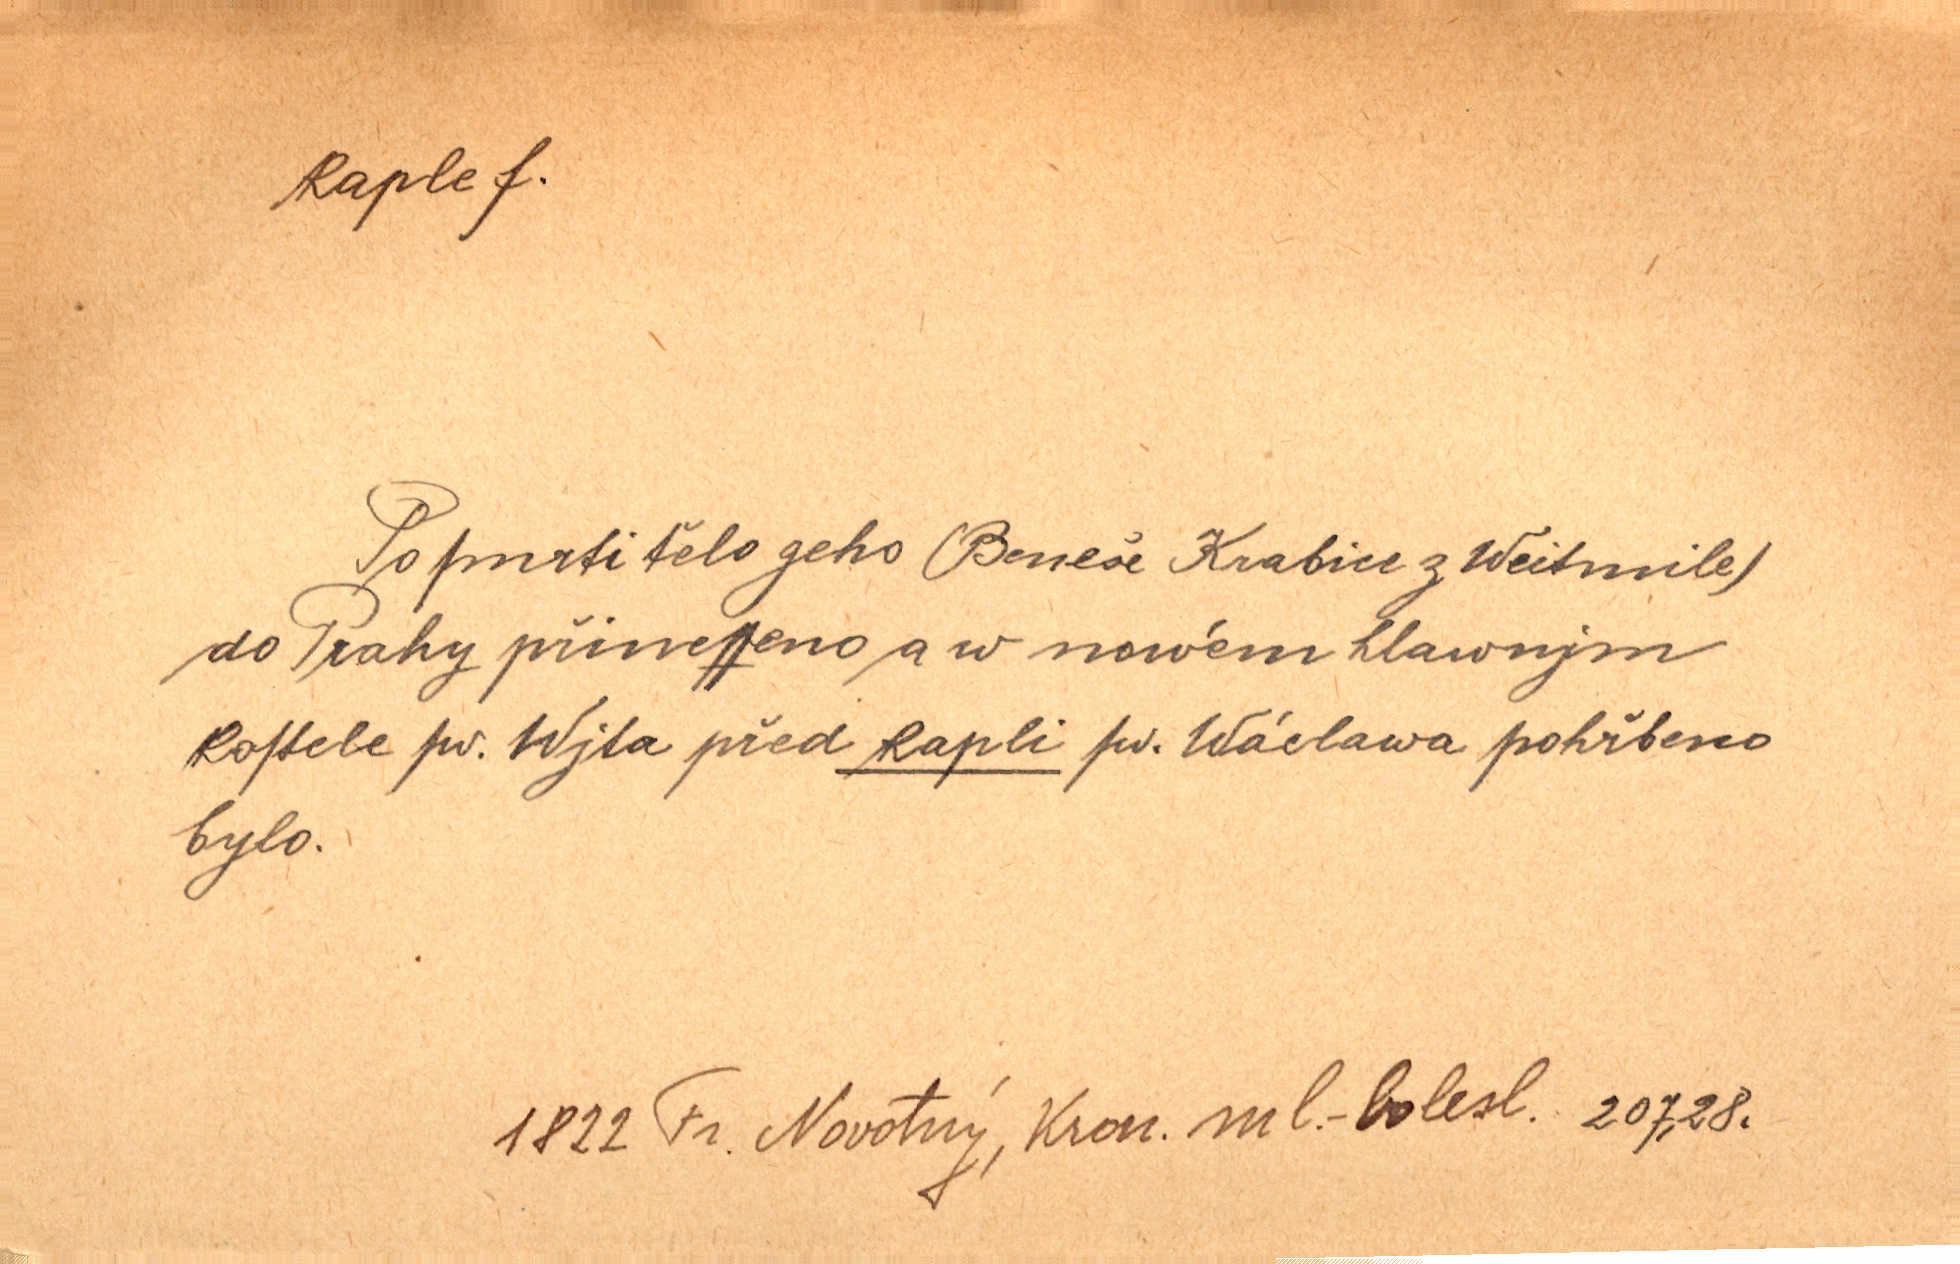 kaple f.
Po ſmrti tělo geho (Beneše Krabice z Weitmile)
do Prahy přineſſeno a w nowém hlawnjm
koſtele ſw. Wjta před kapli ſw. Wáclawa pohřbeno
bylo.
1822 Fr. Novotný, Kron. ml.-bolesl. 207,28.